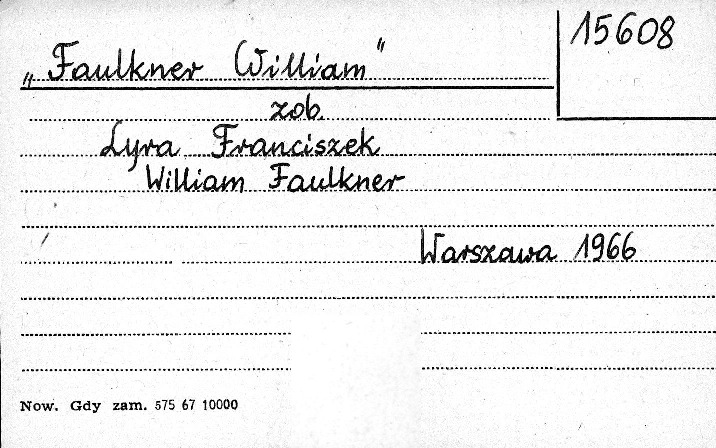 15608
„Faulkner William"
zob.
Lyra Franciszek
William Faulkner
Warszawa 1966
Now. Gdy zam. 575 67 10000